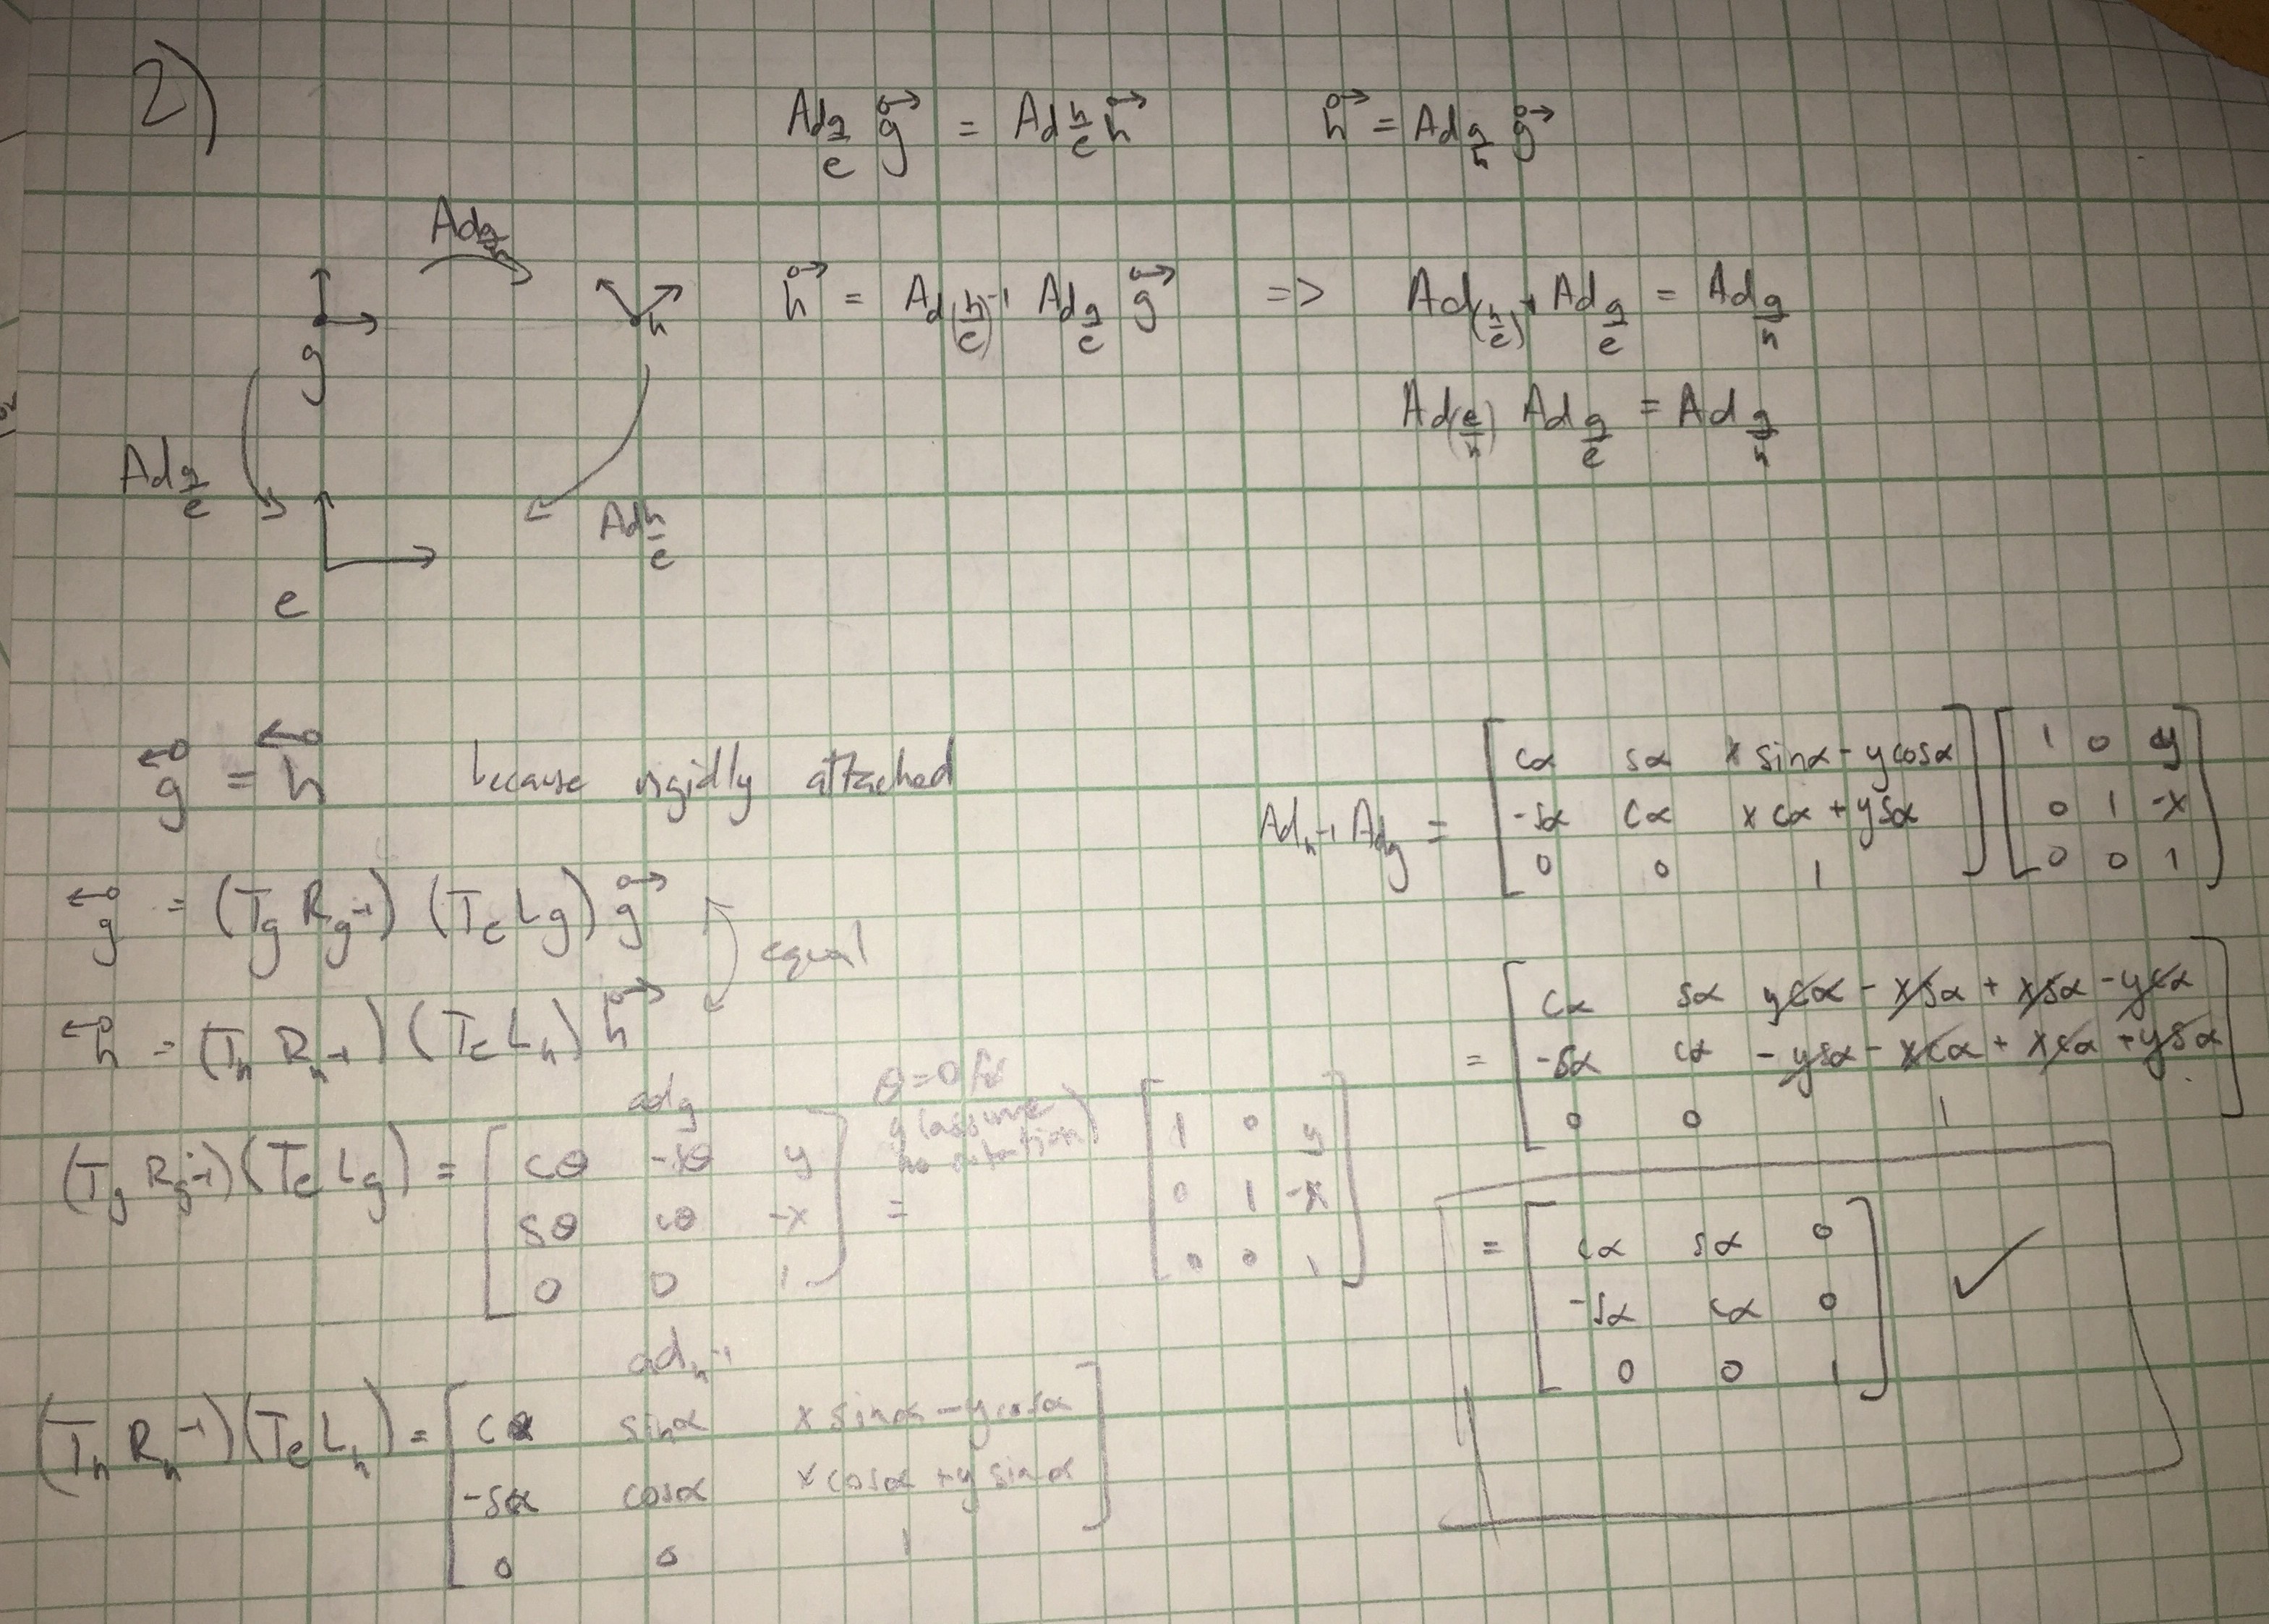 2)
Ad_{g/e} g⃗ = Ad_{h/e} h⃗    h⃗ = Ad_{g/h} g⃗
Ad_{g/h}
g    h    h⃗ = Ad_{(h/e)^{-1}} Ad_{g/e} g⃗  =>  Ad_{(h/e)^{-1}} Ad_{g/e} = Ad_{g/h}
Ad_{(e/h)} Ad_{g/e} = Ad_{g/h}
Ad_{g/e}    Ad_{h/e}
e
g⃖ = h⃖   because rigidly attached
g⃖ = (T_g R_{g^{-1}}) (T_e L_g) g⃗
equal
h⃖ = (T_h R_{h^{-1}}) (T_e L_h) h⃗
ad_g
θ=0 for g (assume no rotation)
(T_g R_{g^{-1}}) (T_e L_g) = [ cθ  -sθ  y
sθ  cθ  -x
0  0  1 ]
= [ 1  0  y
0  1  -x
0  0  1 ]
ad_{h^{-1}}
(T_h R_{h^{-1}}) (T_e L_h) = [ cα  sinα  x sinα - y cosα
-sα  cosα  x cosα + y sinα
0  0  1 ]
Ad_{h^{-1}} Ad_g = [ cα  sα  x sinα - y cosα
-sα  cα  x cα + y sα
0  0  1 ] [ 1  0  y
0  1  -x
0  0  1 ]
= [ cα  sα  ycα - xsα + xsα - ycα
-sα  cα  -ysα - xcα + xcα + ysα
0  0  1 ]
= [ cα  sα  0
-sα  cα  0
0  0  1 ] ✓